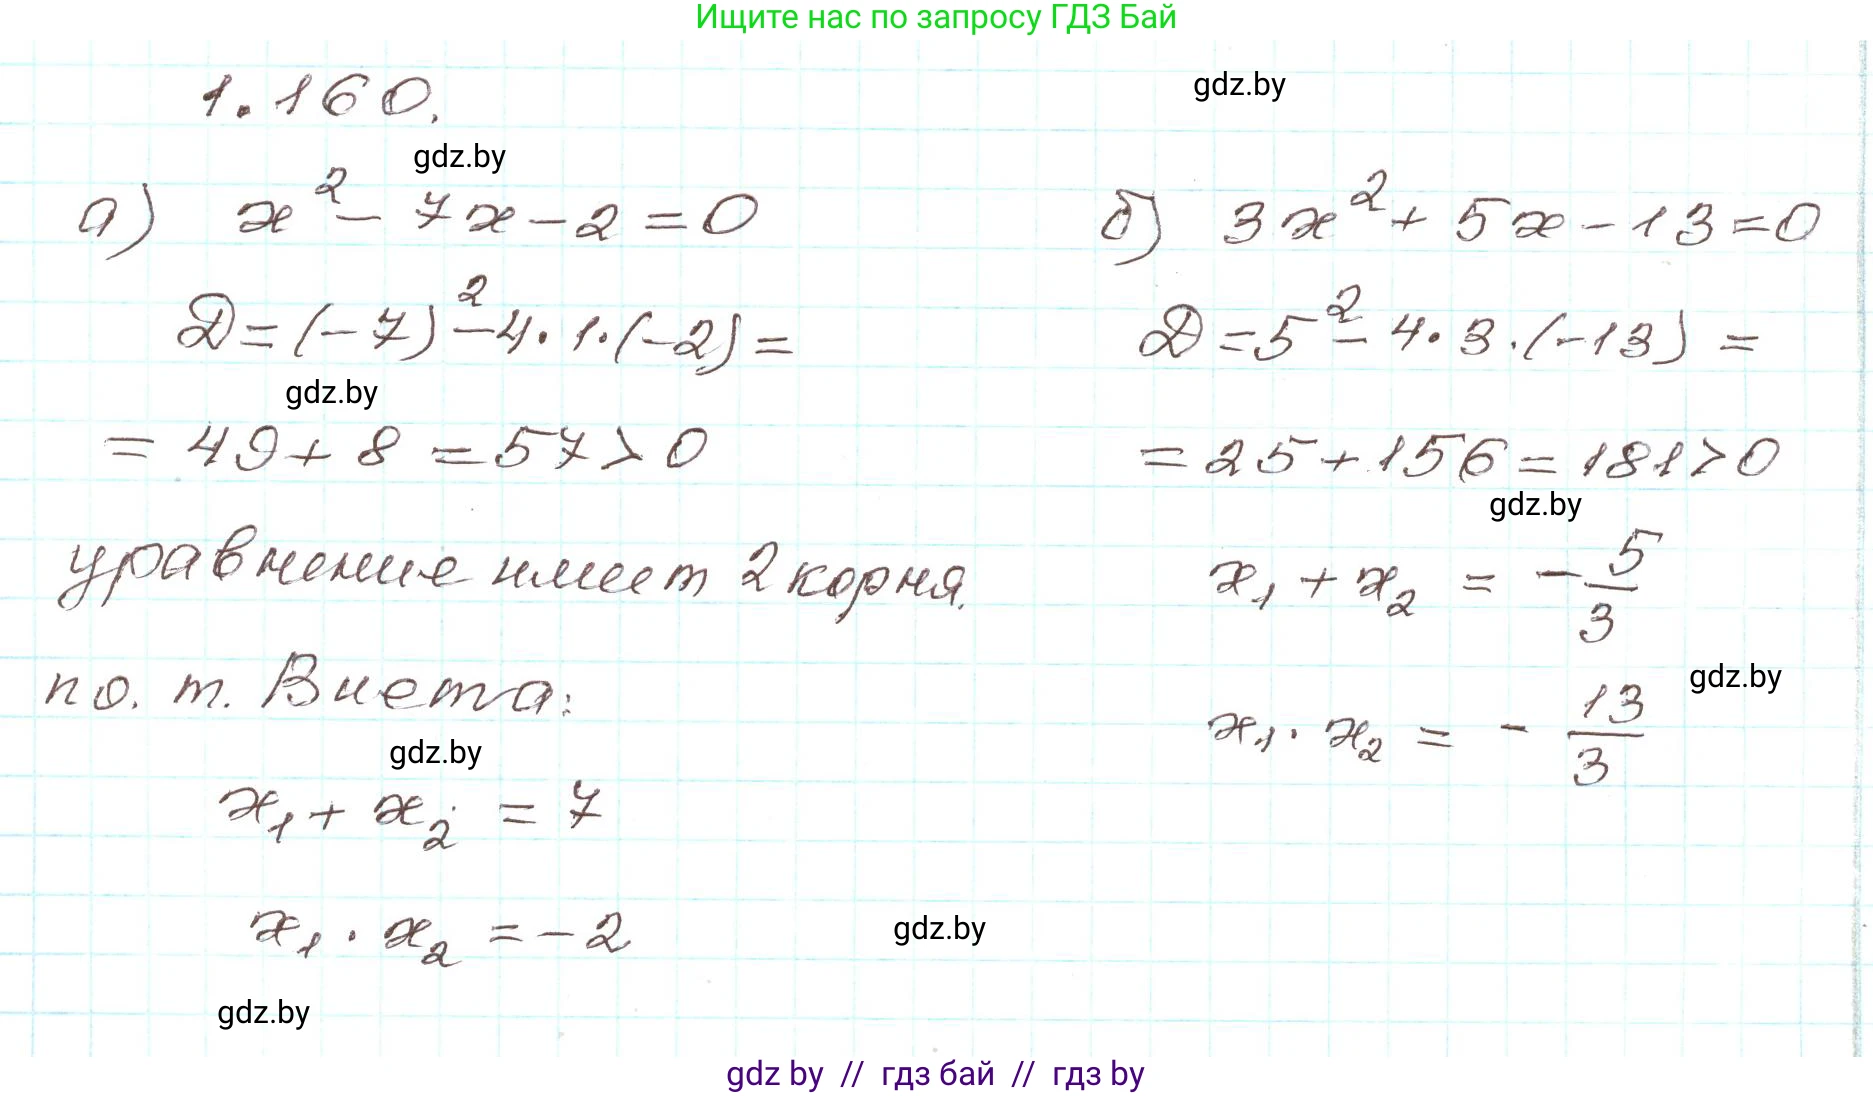 Ищите нас по запросу ГДЗ Бай
1.160.
gdz.by
gdz.by
а) x² - 7x - 2 = 0
D = (-7)² - 4 · 1 · (-2) =
gdz.by
= 49 + 8 = 57 > 0
уравнение имеет 2 корня.
по. т. Виета:
gdz.by
x₁ + x₂ = 7
x₁ · x₂ = -2
gdz.by
gdz.by
б) 3x² + 5x - 13 = 0
D = 5² - 4 · 3 · (-13) =
= 25 + 156 = 181 > 0
gdz.by
x₁ + x₂ = - 5/3
gdz.by
x₁ · x₂ = - 13/3
gdz by // гдз бай // гдз by